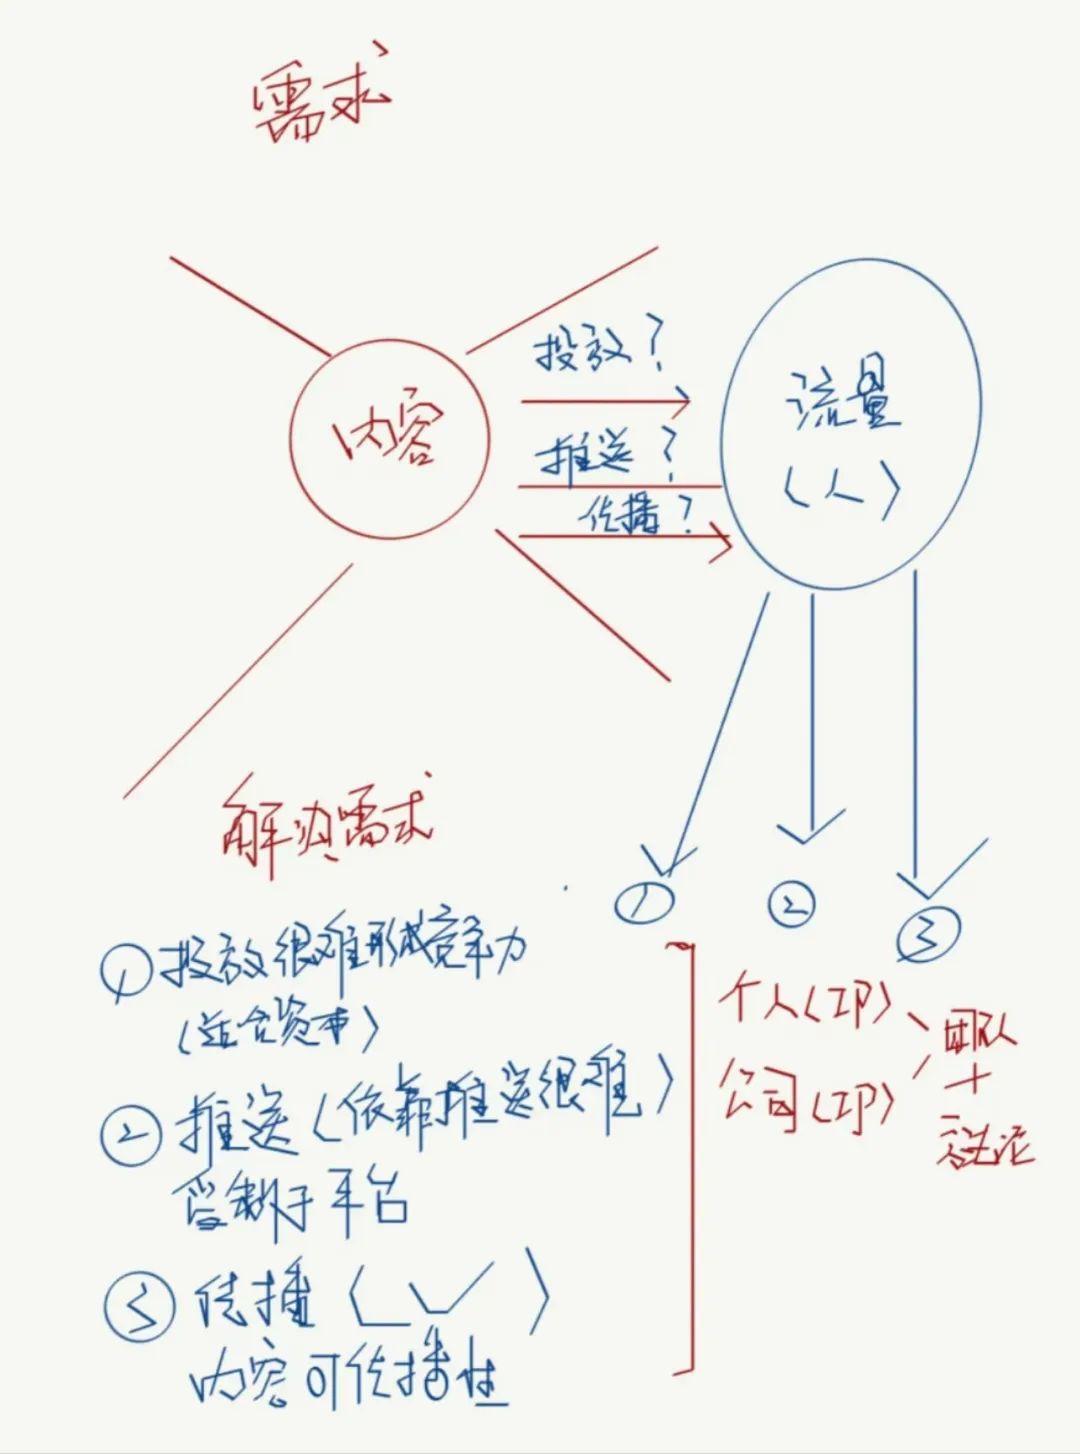 需求
内容
投放？
推送？
传播？
流量
（人）
解决需求
① ② ③
①投放很难形成竞争力
（适合资本）
②推送（依靠推送很难）
受制于平台
③传播（✓）
内容可传播性
个人（IP）
公司（IP）
团队
+